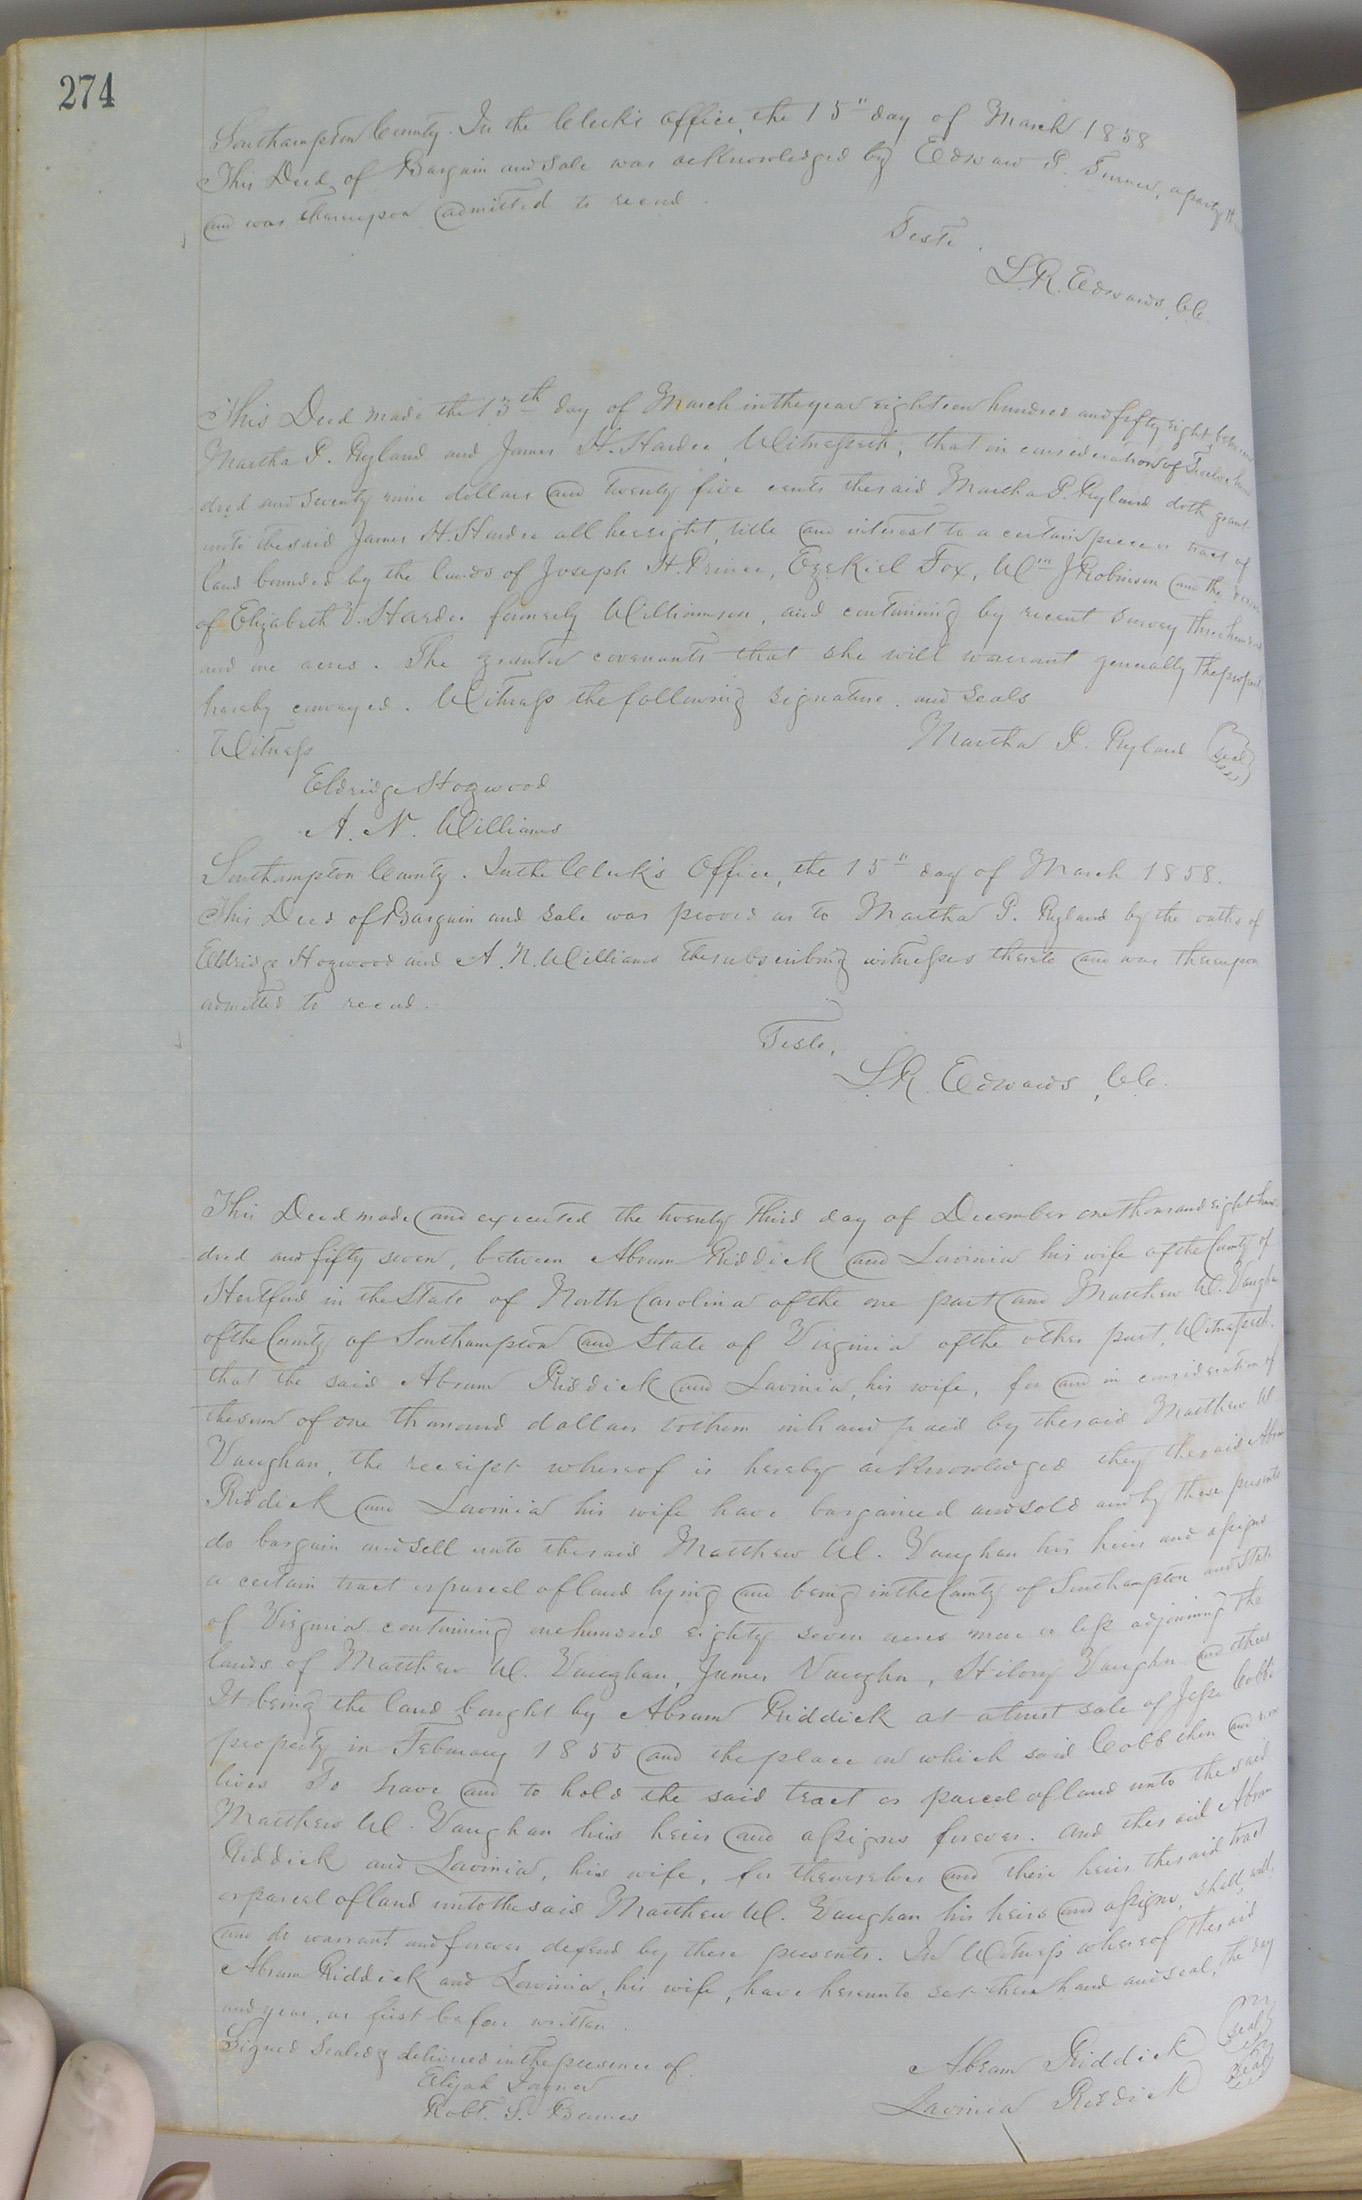 274
Southampton County. In the Clerk's Office, the 15" day of March 1858
This Deed of Bargain and Sale was acknowledged by Edward P. Turner, a party
and was thereupon admitted to record.
Teste.
L.R. Edwards, CC.
This Deed made the 13th day of March in the year eighteen hundred and fifty eight, between
Martha P. Ryland and James H. Hardee, Witnesseth; that in consideration of Twelve hun
dred and seventy nine dollars and twenty five cents the said Martha P. Ryland doth grant
unto the said James H. Hardee all her right, title and interest to a certain piece or tract of
land bounded by the lands of Joseph H. Prince, Ezekiel Fox, Wm J Robinson and the
of Elizabeth V. Hardee formerly Williamson, and containing by recent survey three hundred
and one acres. The grantor covenants that she will warrant generally the property
hereby conveyed. Witness the following signature and seals
Martha P. Ryland (seal)
Witness
Eldridge Hogwood
A. N. Williams
Southampton County. In the Clerk's Office, the 15" day of March 1858.
This Deed of Bargain and Sale was proved as to Martha P. Ryland by the oaths of
Eldridge Hogwood and A. N. Williams the subscribing witnesses thereto and was thereupon
admitted to record.
Teste,
L.R. Edwards, CC.
This Deed made and executed the twenty third day of December one thousand eight hun
dred and fifty seven, between Abram Riddick and Lavinia his wife of the County of
Hertford in the State of North Carolina of the one part and Matthew W. Vaughan
of the County of Southampton and State of Virginia of the other part, Witnesseth.
that the said Abram Riddick and Lavinia, his wife, for and in consideration of
the sum of one thousand dollars to them in hand paid by the said Matthew W
Vaughan, the receipt whereof is hereby acknowledged they the said Abram
Riddick and Lavinia his wife have bargained and sold and by these presents
do bargain and sell unto the said Matthew W. Vaughan his heirs and assigns
a certain tract or parcel of land lying and being in the County of Southampton and State
of Virginia containing one hundred eighty seven acres more or less adjoining the
lands of Matthew W. Vaughan, James Vaughn, Hilory Vaughn and others
It being the land bought by Abram Riddick at a trust sale of Jesse Cobbs
property in February 1855 and the place on which said Cobb then and now
lives To have and to hold the said tract or parcel of land unto the said
Matthew W. Vaughan his heirs and assigns forever. And the said Abram
Riddick and Lavinia, his wife, for themselves and their heirs the said tract
or parcel of land unto the said Matthew W. Vaughan his heirs and assigns, shall, will,
and do warrant and forever defend by these presents. In Witness whereof the said
Abram Riddick and Lavinia, his wife, have hereunto set their hand and seal, the day
and year, as first before written.
Signed Sealed & delivered in the presence of
Abram Riddick (seal)
Elijah Joyner
Lavinia Riddick (seal)
Robt. S. Barnes